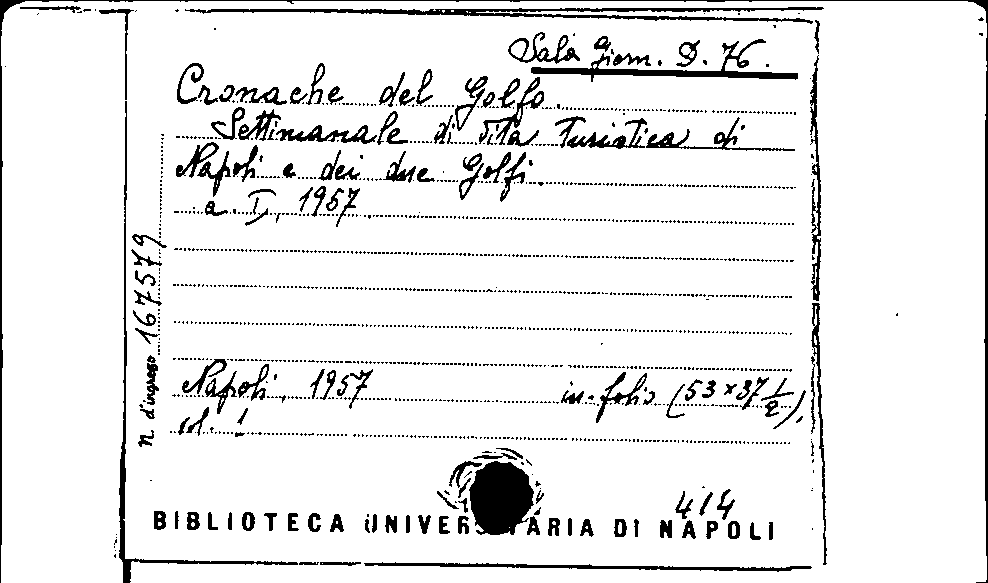 Sala Giorn. D. 76.
Cronache del Golfo.
Settimanale di vita turistica di
Napoli e dei due Golfi.
a. I, 1957.
n. d'ingresso 167579
Napoli, 1957 in-folio (53 x 37 1/2),
vol. 1
414
BIBLIOTECA UNIVERSITARIA DI NAPOLI